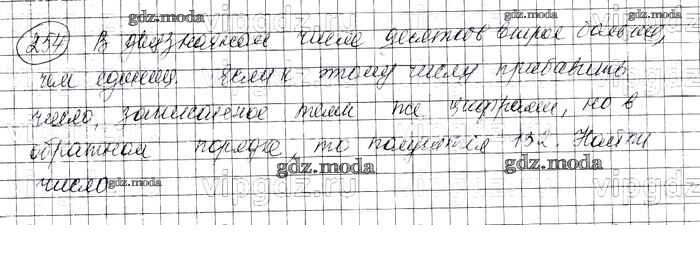 gdz.moda gdz.moda
254 В двузначном числе десятков втрое больше,
чем единиц. Если к этому числу прибавить
число, записанное теми же цифрами, но в
gdz.moda gdz.moda
обратном порядке, то получится 132. Найти
gdz.moda
число
gdz.moda gdz.moda
vipgdz vipgdz